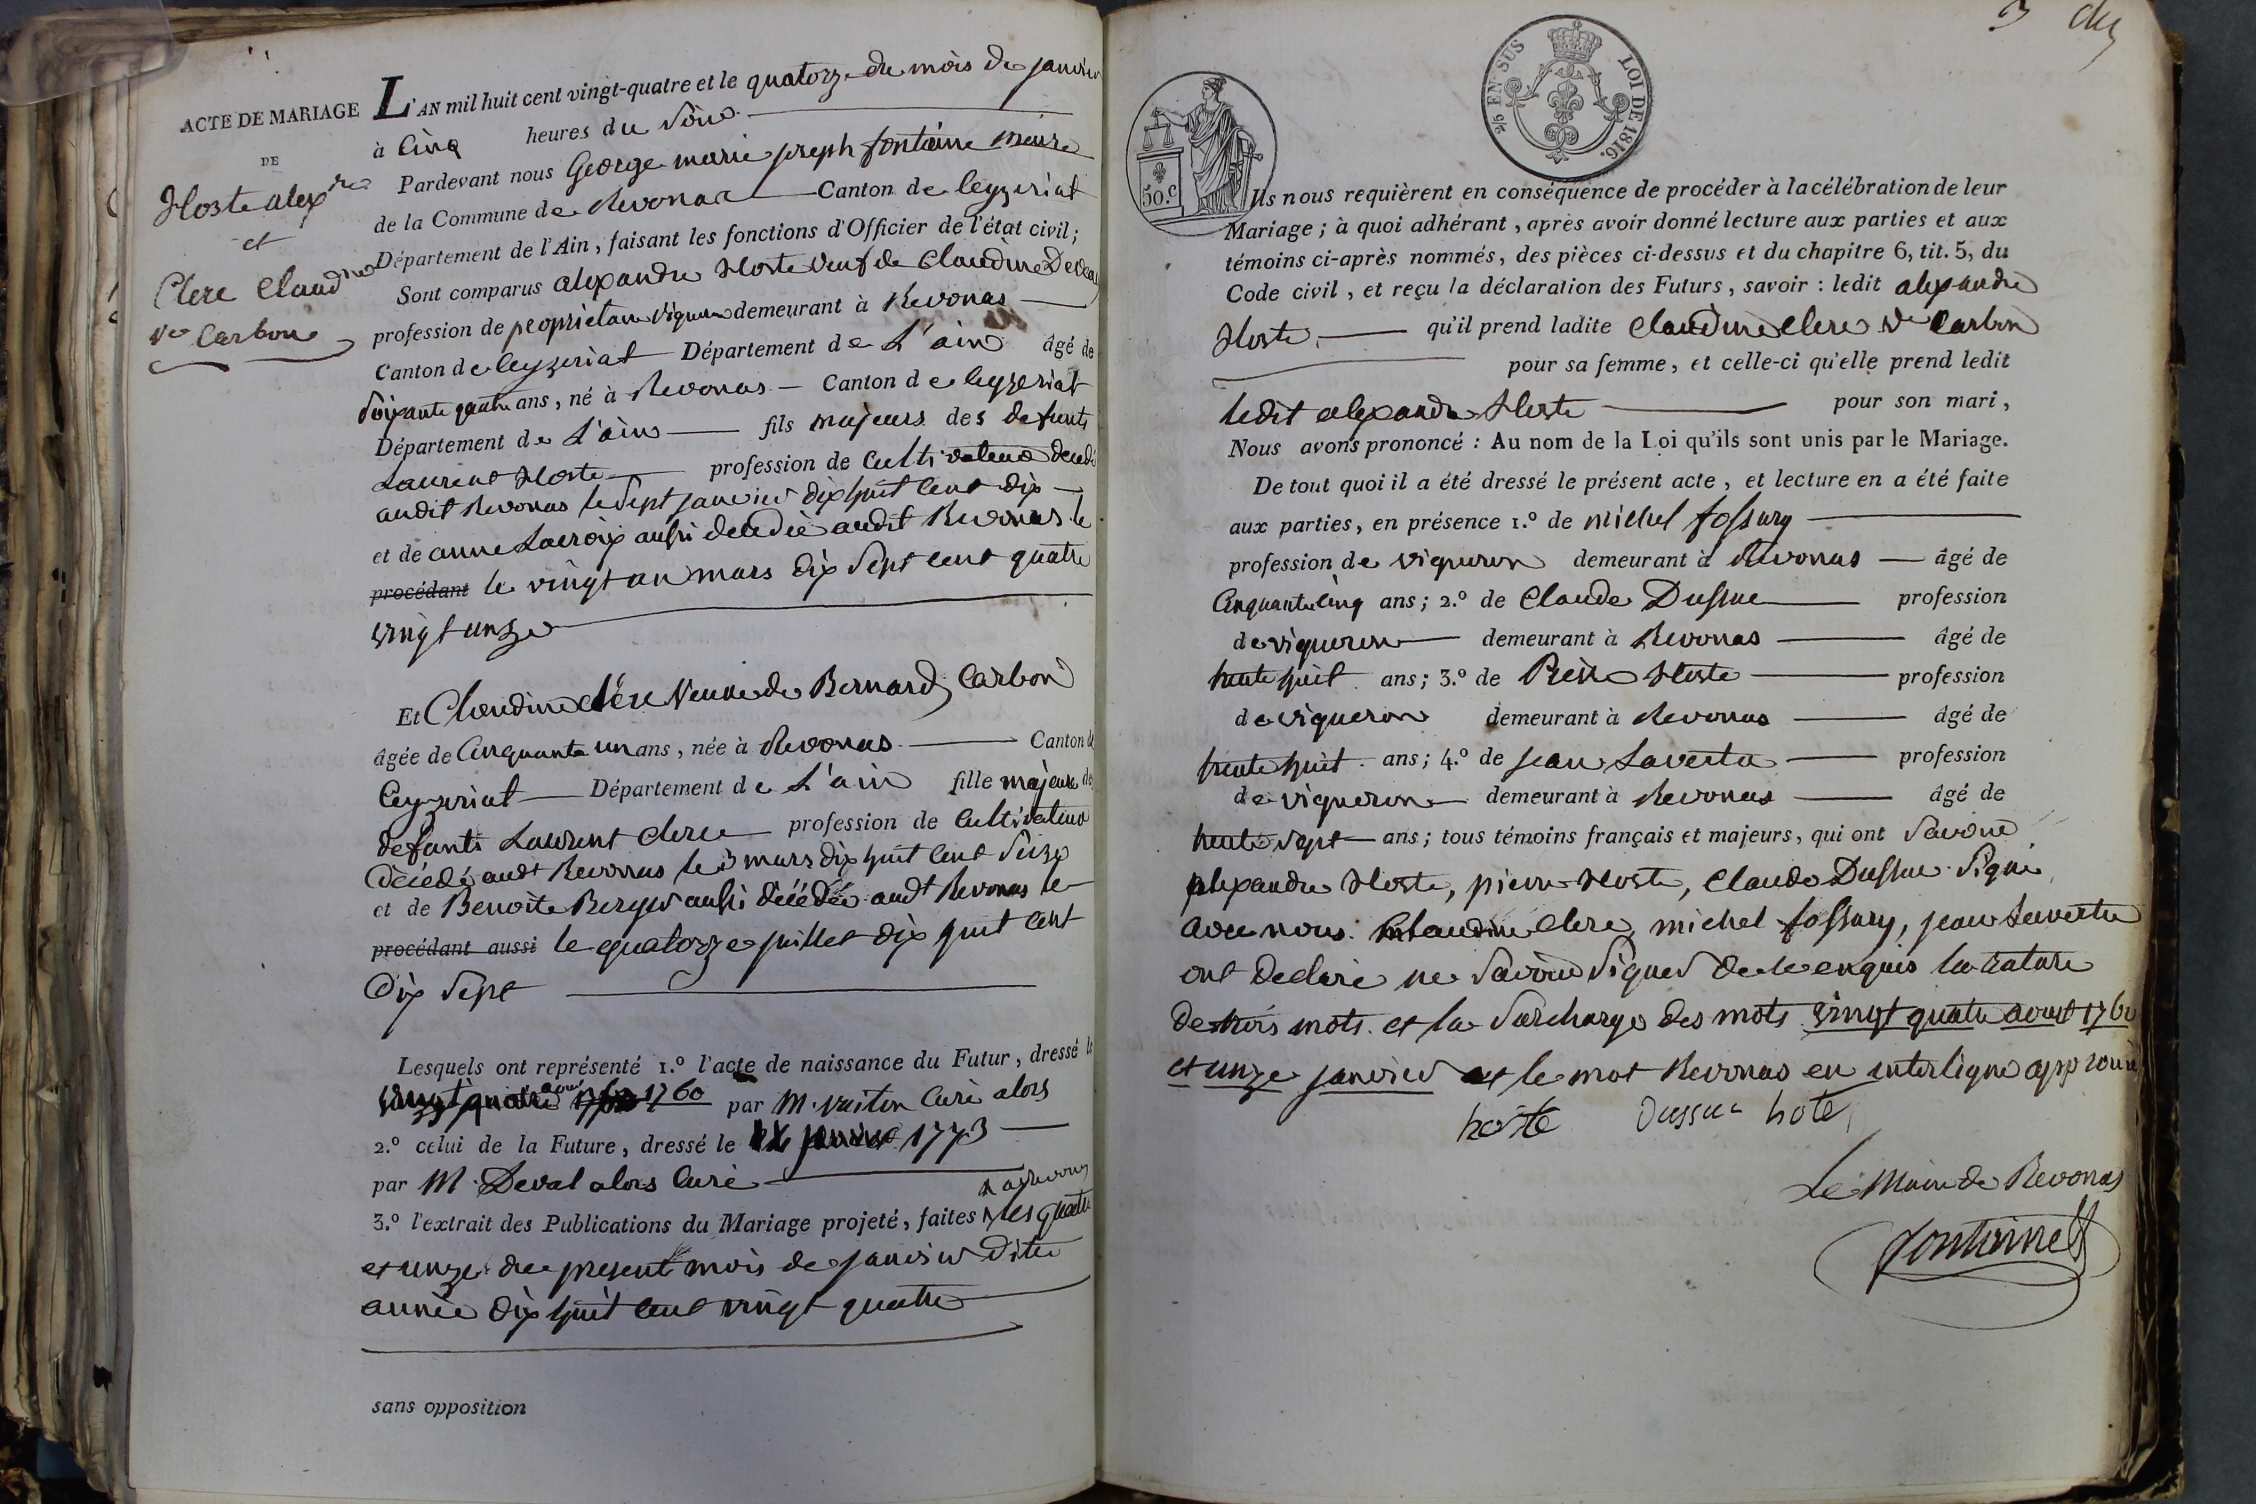 ACTE DE MARIAGE
DE
Hoste alexdre
et
Clere Claudine
ve Carbon
L'AN mil huit cent vingt-quatre et le quatorze du mois de janvier
à Cinq heures du soir
Pardevant nous George marie joseph fontaine maire
de la Commune de Revonas Canton de Ceyzeriat
Département de l'Ain, faisant les fonctions d'Officier de l'état civil;
Sont comparus alexandre Hoste veuf de Claudine
profession de proprietaire vigneron demeurant à Revonas
Canton de Ceyzeriat Département de L'ain âgé de
soixante quatre ans, né à Revonas Canton de Ceyzeriat
Département de L'ain fils majeur des defunts
Laurent Hoste profession de Cultivateur decedé
audit Revonas le sept janvier dix huit cent dix
et de anne Lacroix aussi decedée audit Revonas le
procédant le vingt un mars dix sept cent quatre
vingt unze
Et Claudine Clere Veuve de Bernard Carbon
âgée de Cinquante un ans, née à Revonas Canton de
Ceyzeriat Département de L'ain fille majeure des
defunts Laurent Clere profession de Cultivateur
décédé audt Revonas le 3 mars dix huit cent seize
et de Benoite Berger aussi décédée audt Revonas le
procédant aussi le quatorze juillet dix huit cent
dix sept
Lesquels ont représenté 1.° l'acte de naissance du Futur, dressé le
vingt quatre aout 1760 par M. vuiton Curé alors
2.° celui de la Future, dressé le janvier 1773
par M. Deval alors Curé
a Revonas
3.° l'extrait des Publications du Mariage projeté, faites les quatre
et unze du present mois de janvier dite
année dix huit cent vingt quatre
sans opposition
3
2/5 EN SUS LOI DE 1816.
50.c
Ils nous requièrent en conséquence de procéder à la célébration de leur
Mariage; à quoi adhérant, après avoir donné lecture aux parties et aux
témoins ci-après nommés, des pièces ci-dessus et du chapitre 6, tit. 5, du
Code civil, et reçu la déclaration des Futurs, savoir: ledit alexandre
Hoste qu'il prend ladite Claudine Clere ve Carbon
pour sa femme, et celle-ci qu'elle prend ledit
ledit alexandre Hoste pour son mari,
Nous avons prononcé: Au nom de la Loi qu'ils sont unis par le Mariage.
De tout quoi il a été dressé le présent acte, et lecture en a été faite
aux parties, en présence 1.° de michel fossury
profession de vigneron demeurant à Revonas âgé de
Cinquante cinq ans; 2.° de Claude Dussue profession
de vigneron demeurant à Revonas âgé de
trente huit ans; 3.° de Pierre Hoste profession
de vigneron demeurant à Revonas âgé de
trente huit ans; 4.° de jean Lavertu profession
de vigneron demeurant à Revonas âgé de
trente sept ans; tous témoins français et majeurs, qui ont savoir
alexandre Hoste, pierre Hoste, Claude Dussue signé
avec nous. Claudine Clere, michel fossury, jean Lavertu
ont declaré ne savoir signer de ce enquis la rature
de trois mots et la surcharge des mots vingt quatre aoust 1760
et unze janvier et le mot Revonas en interligne approuvé
hoste Dussue hote
Le Maire de Revonas
fontaine